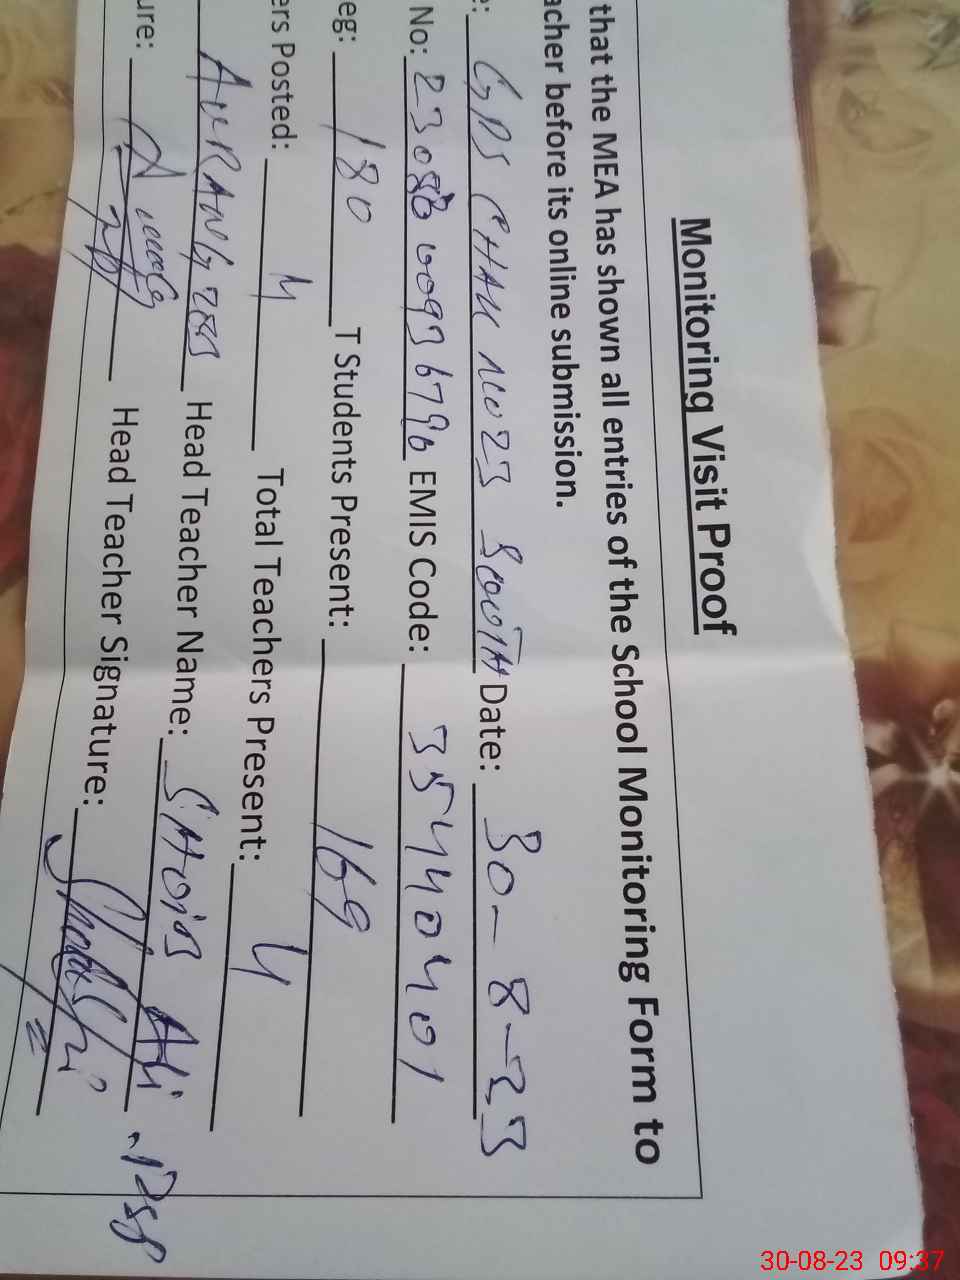 Monitoring Visit Proof
that the MEA has shown all entries of the School Monitoring Form to
acher before its online submission.
e: GPS CHAK NO 23 SOUTH Date: 30-8-23
No: EMIS Code: 35440401
eg: 180 T Students Present: 169
ers Posted: 4 Total Teachers Present: 4
AURANGZEB Head Teacher Name: SHOAIB Ali .PSS
ure: Head Teacher Signature:
30-08-23 09:37